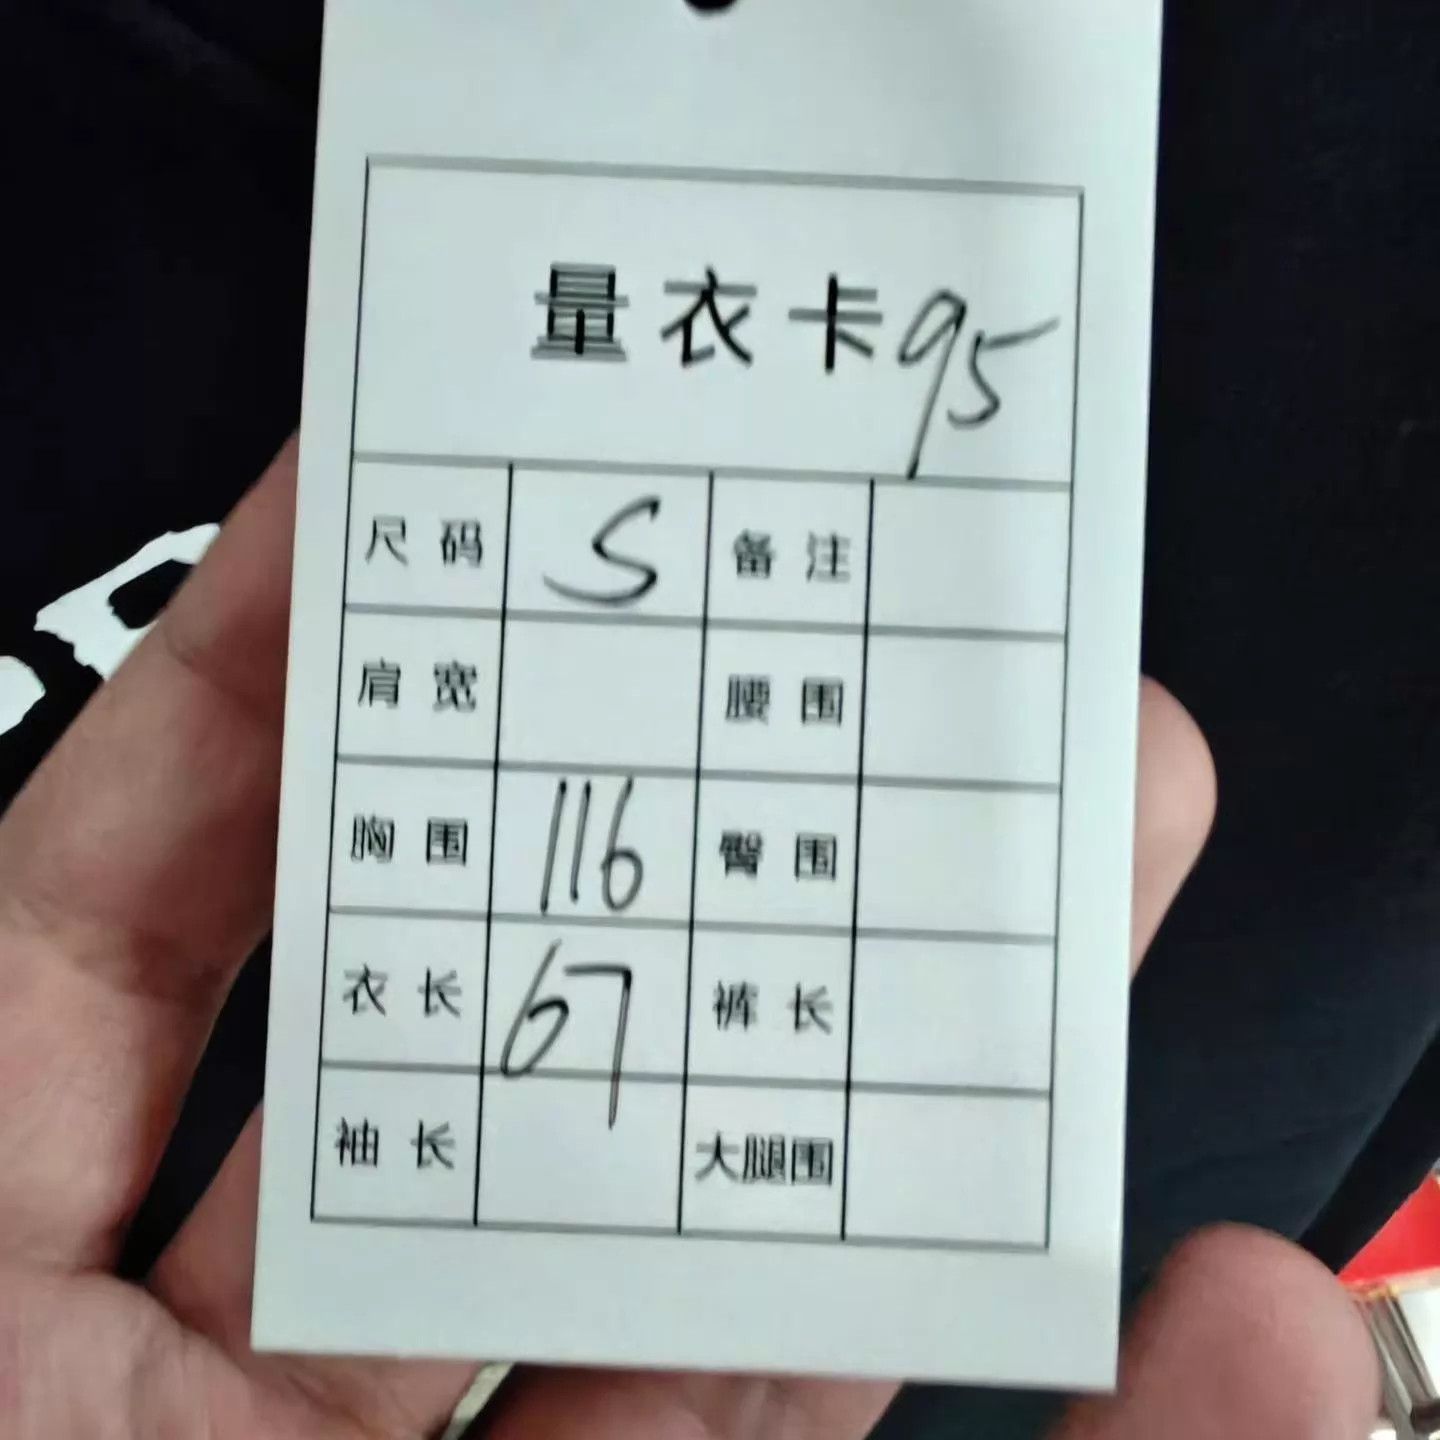 量衣卡 95
尺码 S 备注
肩宽 腰围
胸围 116 臀围
衣长 67 裤长
袖长 大腿围